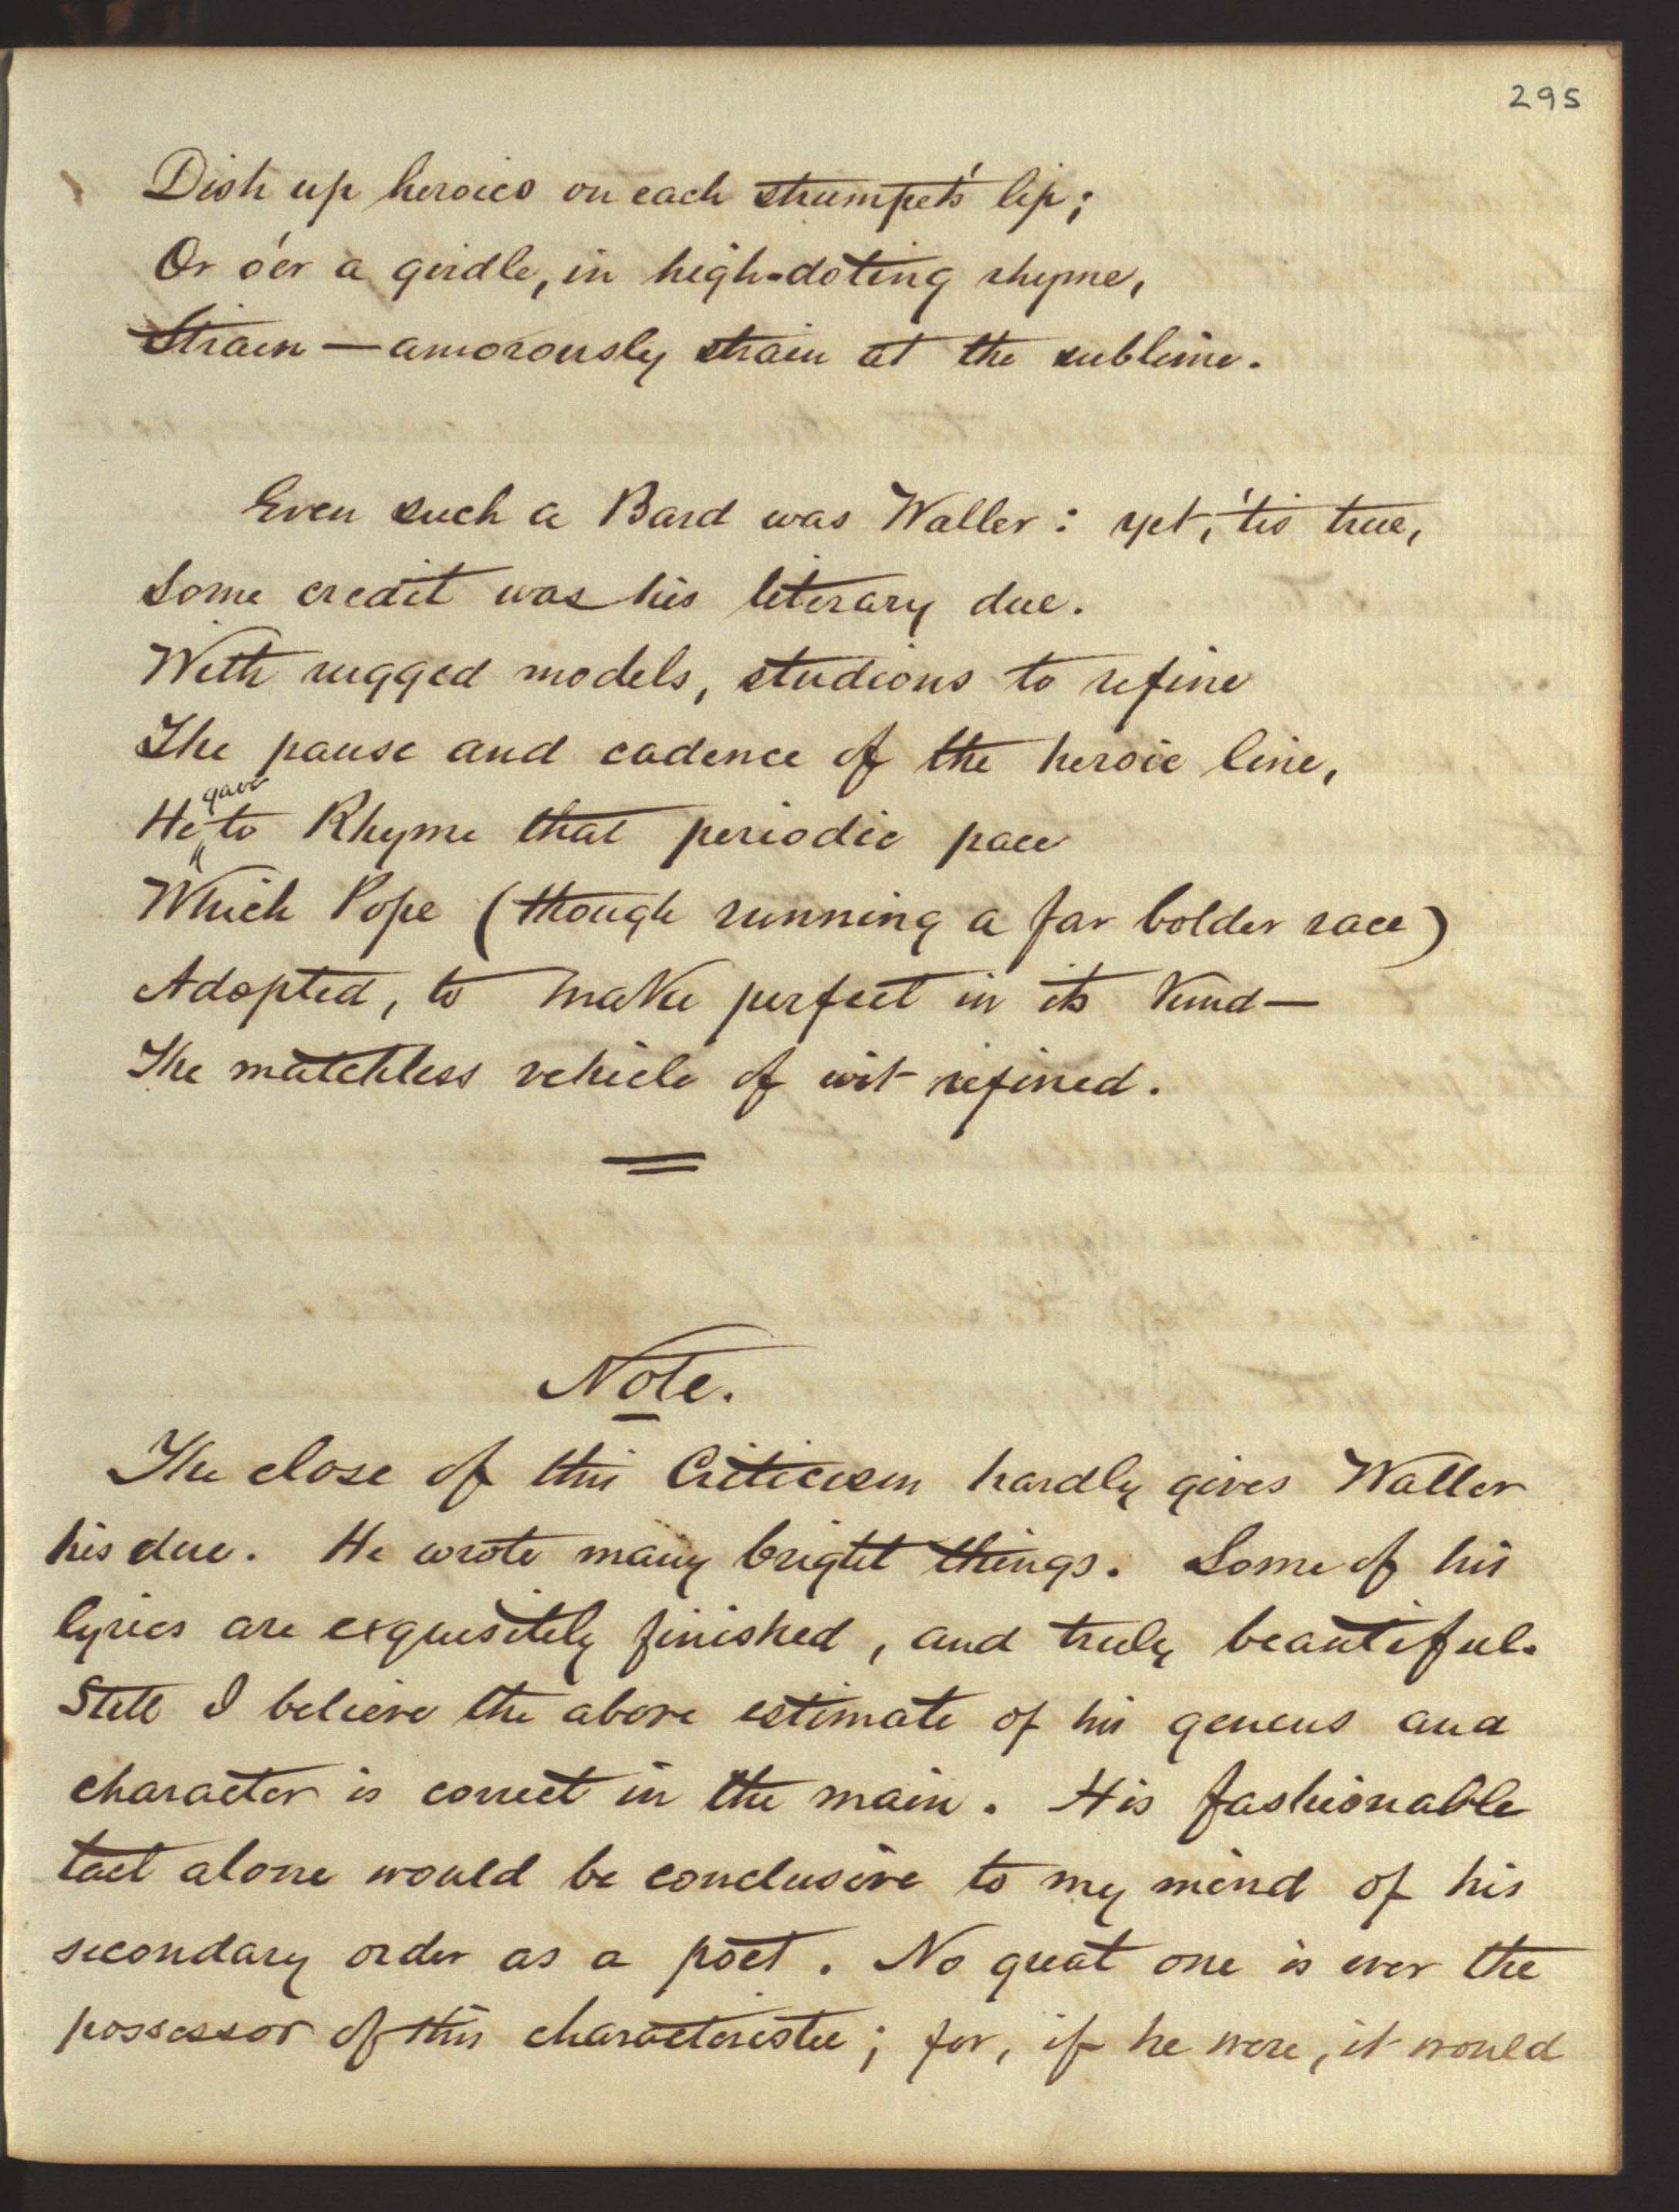 295
Dish up heroics on each strumpet's lip;
Or o'er a girdle, in high-doting rhyme,
Strain — amorously strain at the sublime.
Even such a Bard was Waller: yet, 'tis true,
Some credit was his literary due.
With rugged models, studious to refine
The pause and cadence of the heroic line,
He gave to Rhyme that periodic pace
Which Pope (though running a far bolder race)
Adopted, to make perfect in its kind—
The matchless vehicle of wit refined.
Note.
The close of this Criticism hardly gives Waller
his due. He wrote many bright things. Some of his
lyrics are exquisitely finished, and truly beautiful.
Still I believe the above estimate of his genius and
character is correct in the main. His fashionable
tact alone would be conclusive to my mind of his
secondary order as a poet. No great one is ever the
possessor of this characteristic; for, if he were, it would